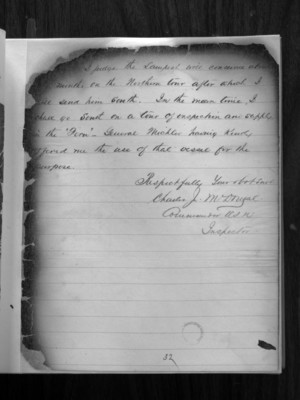 I judge the Lampist will consume about
months on the Northern tour after which I
send him South. In the mean time I
shall go South on a tour of inspection and supply
in the "Fern" General Meckler having kindly
offered me the use of that vessel for the
purpose
Respectfully Your obdt Servt
Charles J. McDougal
Commander U.S.N.
Inspector
52